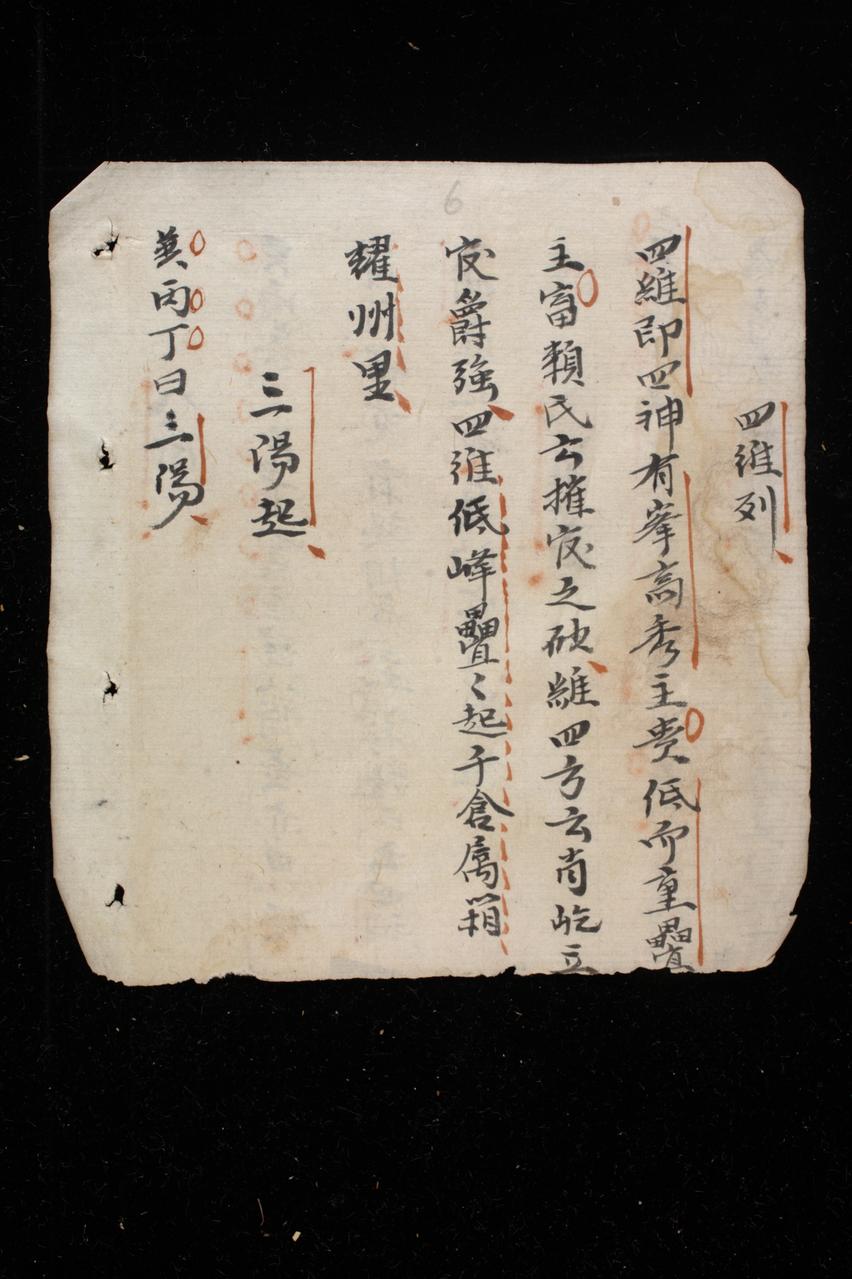 四維列
四維即四神有峯高秀主贵低而重疊
主富賴氏云催官之砂維四方云肖屹立
官爵強四維低峰疊〻起千倉属箱
耀州里
三陽起
巽丙丁曰三陽
6